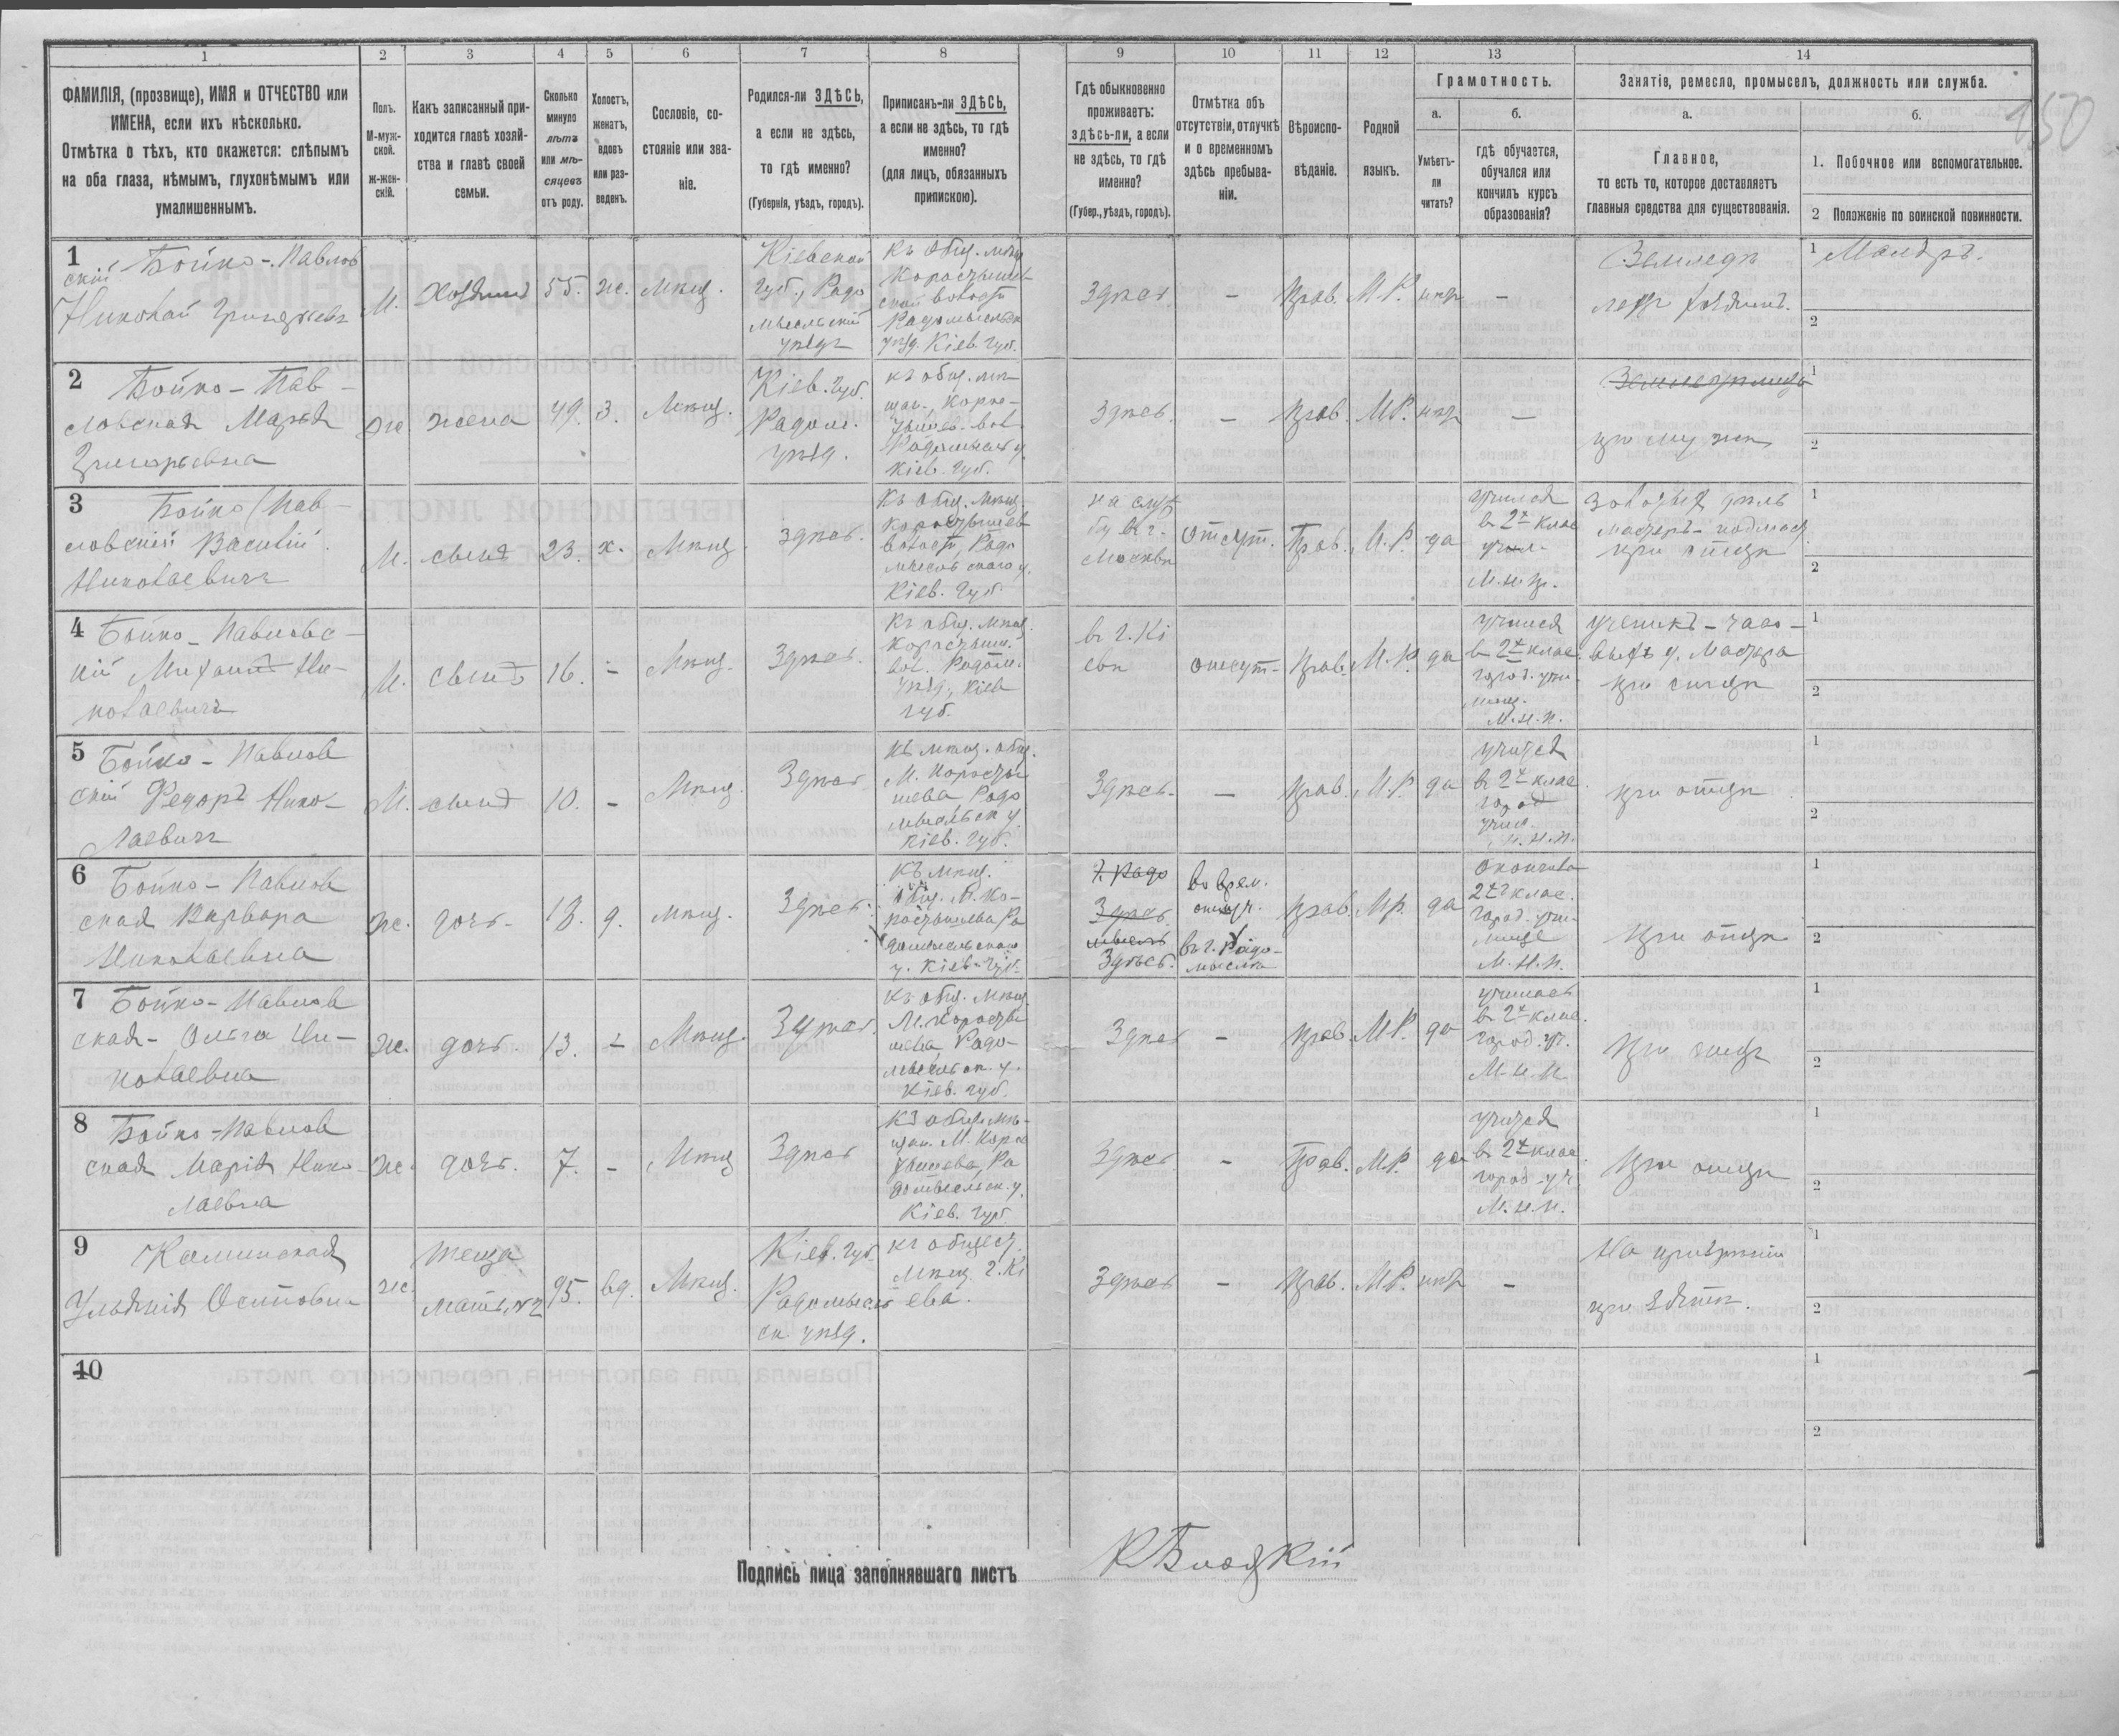 1 2 3 4 5 6 7 8 9 10 11 12 13 14
150
ФАМИЛІЯ, (прозвище), ИМЯ и ОТЧЕСТВО или
ИМЕНА, если ихъ нѣсколько.
Отмѣтка о тѣхъ, кто окажется: слѣпымъ
на оба глаза, нѣмымъ, глухонѣмымъ или
умалишеннымъ.
Полъ.
М-муж-
ской.
Ж-жен-
скій.
Какъ записанный при-
ходится главѣ хозяй-
ства и главѣ своей
семьи.
Сколько
минуло
лѣтъ
или мѣ-
сяцевъ
отъ роду.
Холостъ,
женатъ,
вдовъ
или раз-
веденъ.
Сословіе, со-
стояніе или зва-
ніе.
Родился-ли ЗДѢСЬ,
а если не здѣсь,
то гдѣ именно?
(Губернія, уѣздъ, городъ).
Приписанъ-ли ЗДѢСЬ,
а если не здѣсь, то гдѣ
именно?
(для лицъ, обязанныхъ
припискою).
Гдѣ обыкновенно
проживаетъ:
здѣсь-ли, а если
не здѣсь, то гдѣ
именно?
(Губер., уѣздъ, городъ).
Отмѣтка объ
отсутствіи, отлучкѣ
и о временномъ
здѣсь пребыва-
ніи.
Вѣроиспо-
вѣданіе.
Родной
языкъ.
Грамотность.
а.
Умѣетъ-
ли
читать?
б.
гдѣ обучается,
обучался или
кончилъ курсъ
образованія?
Занятіе, ремесло, промыселъ, должность или служба.
а.
Главное,
то есть то, которое доставляетъ
главныя средства для существованія.
б.
1. Побочное или вспомогательное.
2 Положеніе по воинской повинности.
1
Бойко-Павлов
скій
Николай Григорьевъ
М.
хозяинъ
55.
ж.
Мѣщ.
Кіевской
губ., Радо
мысльскій
уѣздъ
Къ общ. мѣщ
Коростышев
ской волости
Радомысльск
уѣзд. Кіев. губ.
Здѣсь
-
Прав.
М.Р.
нѣтъ
-
Земледѣ
лецъ хозяинъ.
1 Маляръ.
2
2
Бойко-Пав-
ловская Марія
Григорьевна
Ж.
жена
49.
З.
Мѣщ.
Кіев. губ.
Радом.
уѣзд.
къ общ. мѣ
щан., Коро-
стышев. вол.
Радомысл у.
Кіев. губ.
Здѣсь
-
Прав.
М.Р.
нѣт
-
при мужѣ
1
2
3
Бойко Пав-
ловскій Василій
Николаевичъ
М.
сынъ
23.
х.
Мѣщ.
Здѣсь.
Къ общ. мѣщ.
Коростышев
волости, Радо
мысльскаго у.
Кіев. губ.
на служ
бѣ въ г.
Москвѣ
Отсут.
Прав.
М.Р.
да
учился
в 2х клас
учил.
М.н.пр.
Золотыхъ дѣлъ
мастеръ-подмаст.
при отцѣ
1
2
4
Бойко-Павловс-
кій Михаилъ Ни-
колаевичъ
М.
сынъ
16.
-
Мѣщ.
Здѣсь.
Къ общ. мѣщ.
Коростыш.
вол. Радом.
уѣзд., Кіев
губ.
въ г. Кі
евѣ
отсут.
Прав.
М.Р.
да
учился
в 2х клас.
город. учи-
лищ.
М.н.п.
ученикъ-часо-
выхъ д. мастера
при отцѣ
1
2
5
Бойко-Павлов
скій Федоръ Нико-
лаевичъ
М.
сынъ
10.
-
Мѣщ.
Здѣсь
къ мѣщ. общ.
М. Коросты
шева, Радо
мысльск у
Кіев. губ.
Здѣсь.
-
Прав.
М.Р.
да
учится
в 2х клас.
город
учил.
М.н.п.
при отцѣ
1
2
6
Бойко-Павлов
ская Варвара
Николаевна
Ж.
дочь.
18.
д.
Мѣщ.
Здѣсь.
къ мѣщ.
общ. М. Ко-
ростышева Ра
домысльскаго
у. Кіев. губ.
г. Радо
Здѣсь
мысль
Здѣсь.
во врем.
отлуч.
въ г. Радо-
мыслѣ
Прав.
М.Р.
да
окончила
2хъ клас.
город. учи-
лище
М.Н.П.
при отцѣ
1
2
7
Бойко-Павлов
ская-Ольга Ни-
колаевна
Ж.
дочь.
13.
-
Мѣщ.
Здѣсь.
къ общ. мѣщ
М. Коросты
шева Радо-
мысльск. у.
Кіев. губ
Здѣсь
-
Прав.
М.Р.
да
училась
в 2х клас.
город. уч.
М.н.п
при отцѣ
1
2
8
Бойко-Павлов
ская Марія Нико-
лаевна
Ж.
дочь.
7.
-
Мѣщ
Здѣсь
Къ общ. мѣ-
щан. М. Коро
стышева, Ра
домысльск. у.
Кіев. губ
Здѣсь
-
Прав.
М.Р.
да
учится
в 2х клас.
город-уч
М.н.п.
при отцѣ
1
2
9
Каминская
Ульянія Осиповна
Ж.
теща
мать, №2
95.
вд.
Мѣщ.
Кіев. губ.
Радомысль
ск. уѣзд.
къ общест.
Мѣщ. г. Кі
ева.
Здѣсь
-
Прав.
М.Р.
нѣт
-
На призрѣніи
при зятѣ.
1
2
10
1
2
Подпись лица заполнявшаго листъ